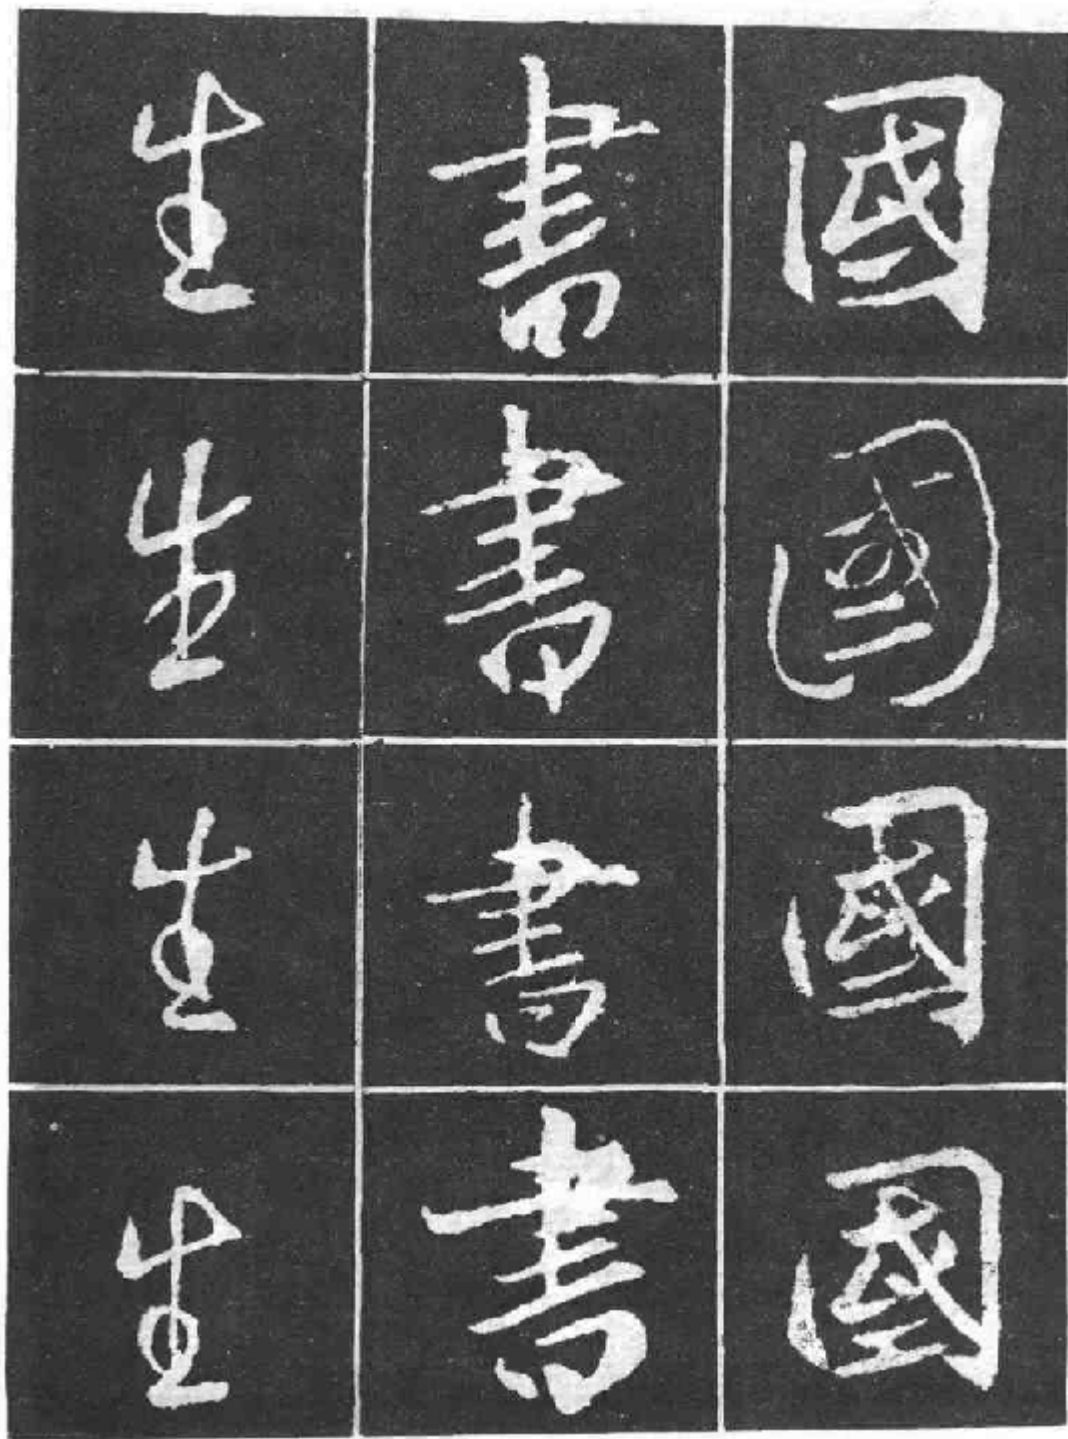 國國國國
書書書書
生生生生